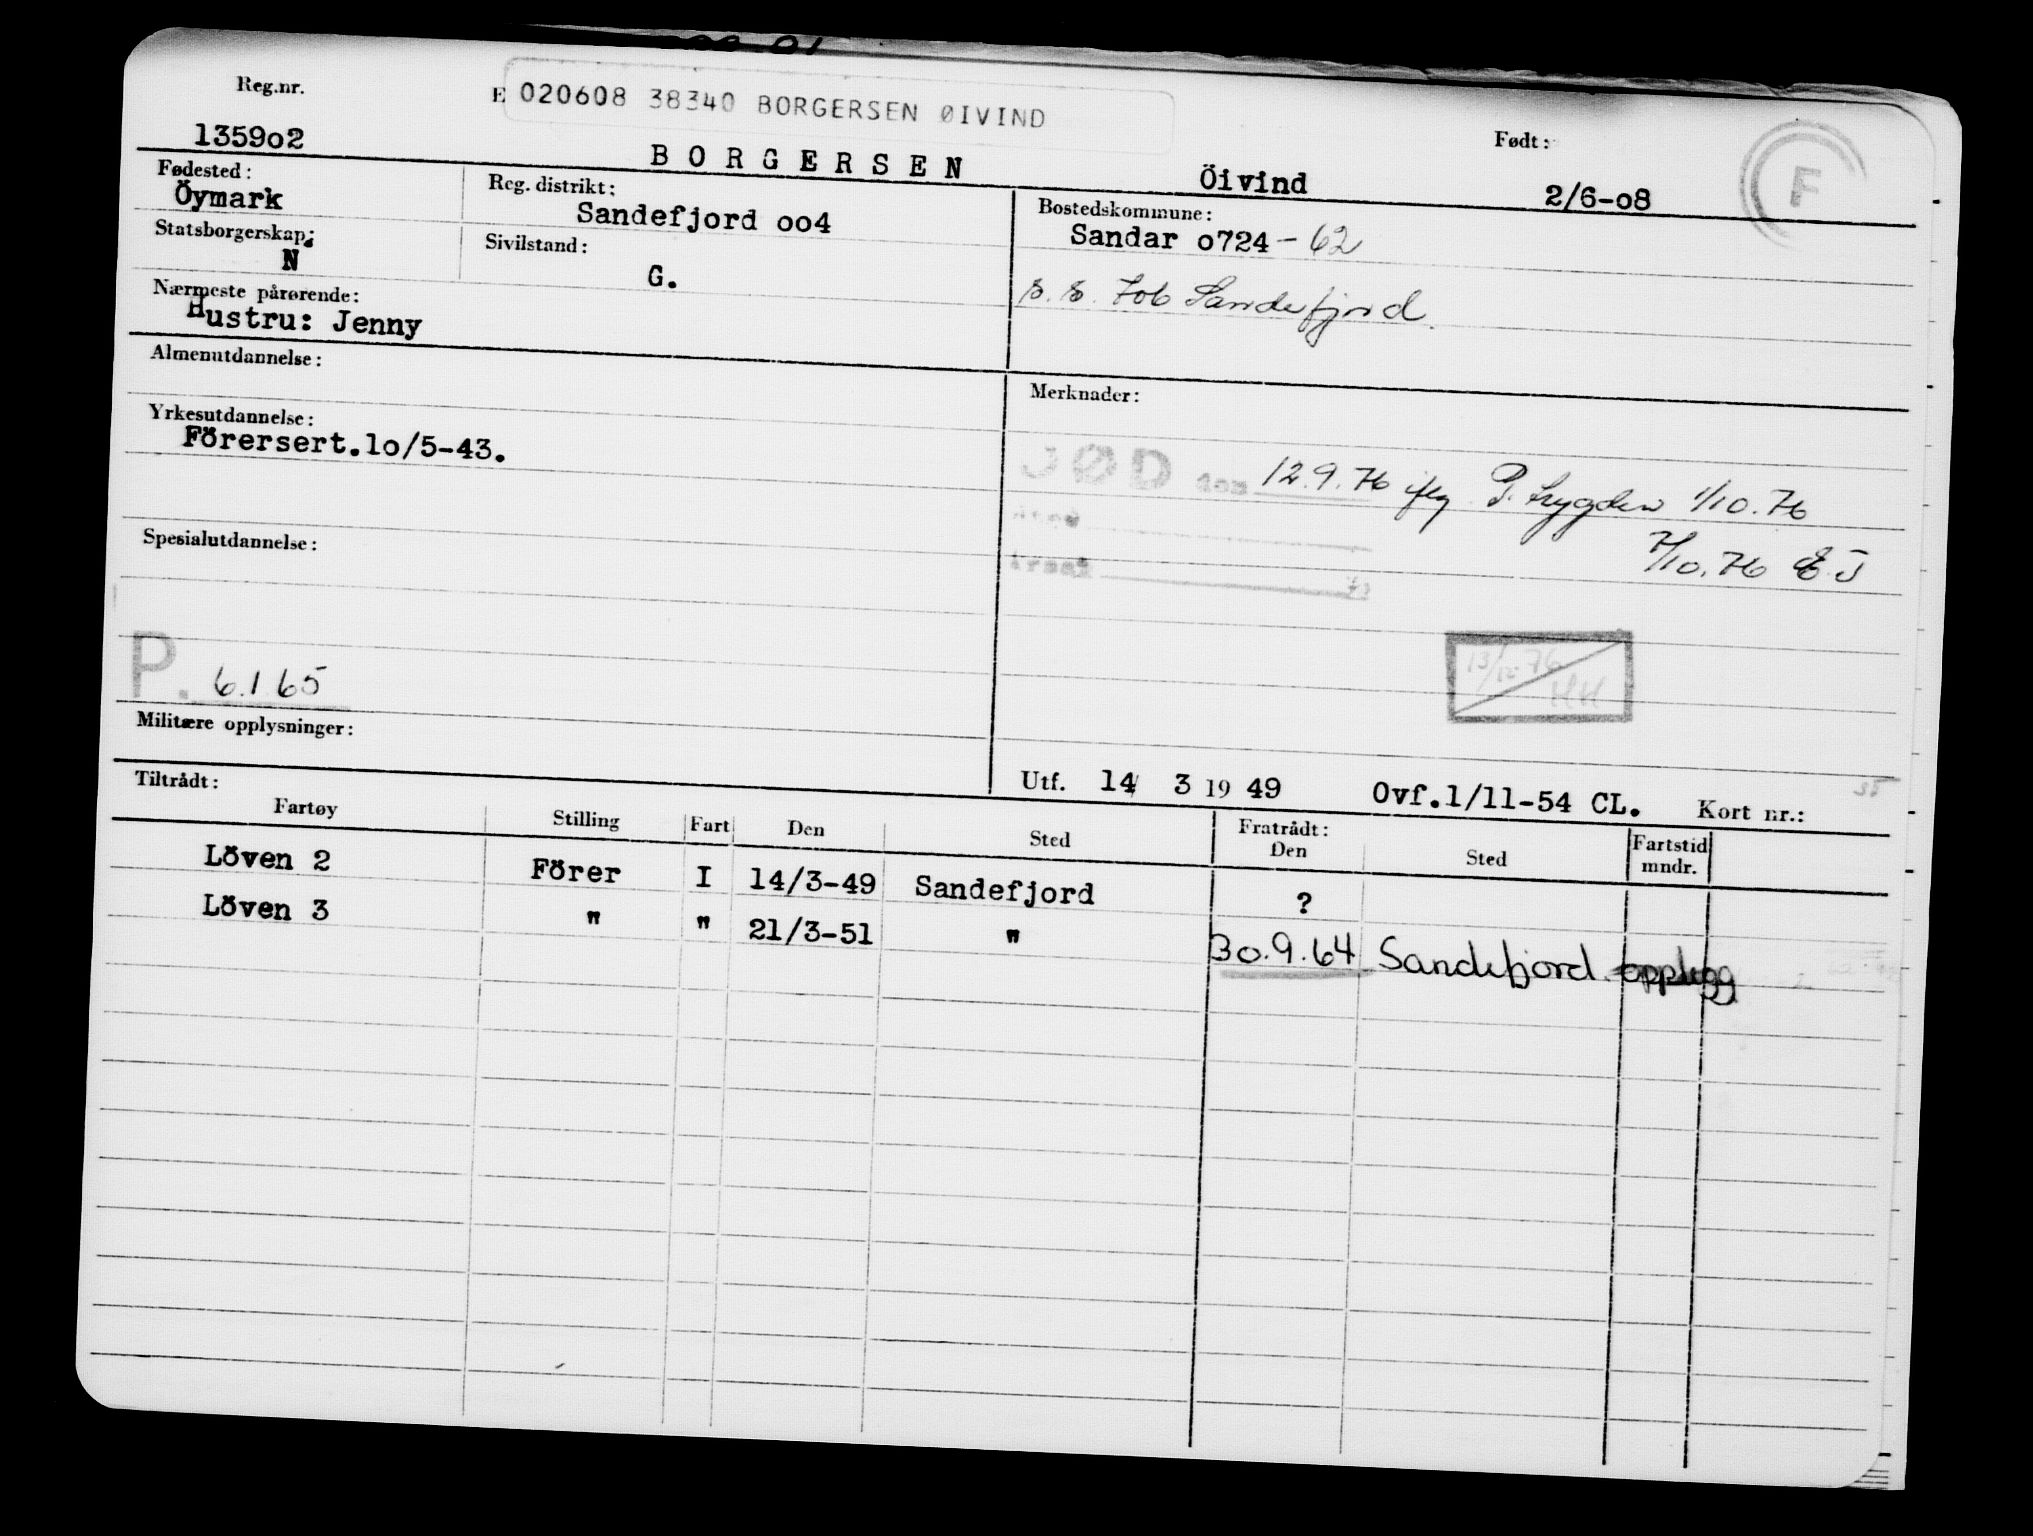 Reg.nr.
E 020608 38340 BORGERSEN ØIVIND
Født:
F
1359o2 BORGERSEN Öivind 2/6-o8
Fødested: Reg. distrikt: Bostedskommune:
Öymark Sandefjord oo4 Sandar o724 - 62
Statsborgerskap: Sivilstand:
N G.
s.s. Sandefjord
Nærmeste pårørende:
Hustru: Jenny
Almenutdannelse: Merknader:
Yrkesutdannelse:
Förersert.lo/5-43.
DØD den 12.9.76 iflg P. trygden 1/10.76
7/10.76
Årsak
Spesialutdannelse:
13/12-76
HH
P. 6.1.65
Militære opplysninger:
Utf. 14 3 19 49 Ovf.1/11-54 CL. Kort nr.:
Tiltrådt: Fratrådt:
Fartøy Stilling Fart Den Sted Den Sted Fartstid mndr.
Löven 2 Förer I 14/3-49 Sandefjord ?
Löven 3 " " 21/3-51 " 30.9.64 Sandefjord opplegg